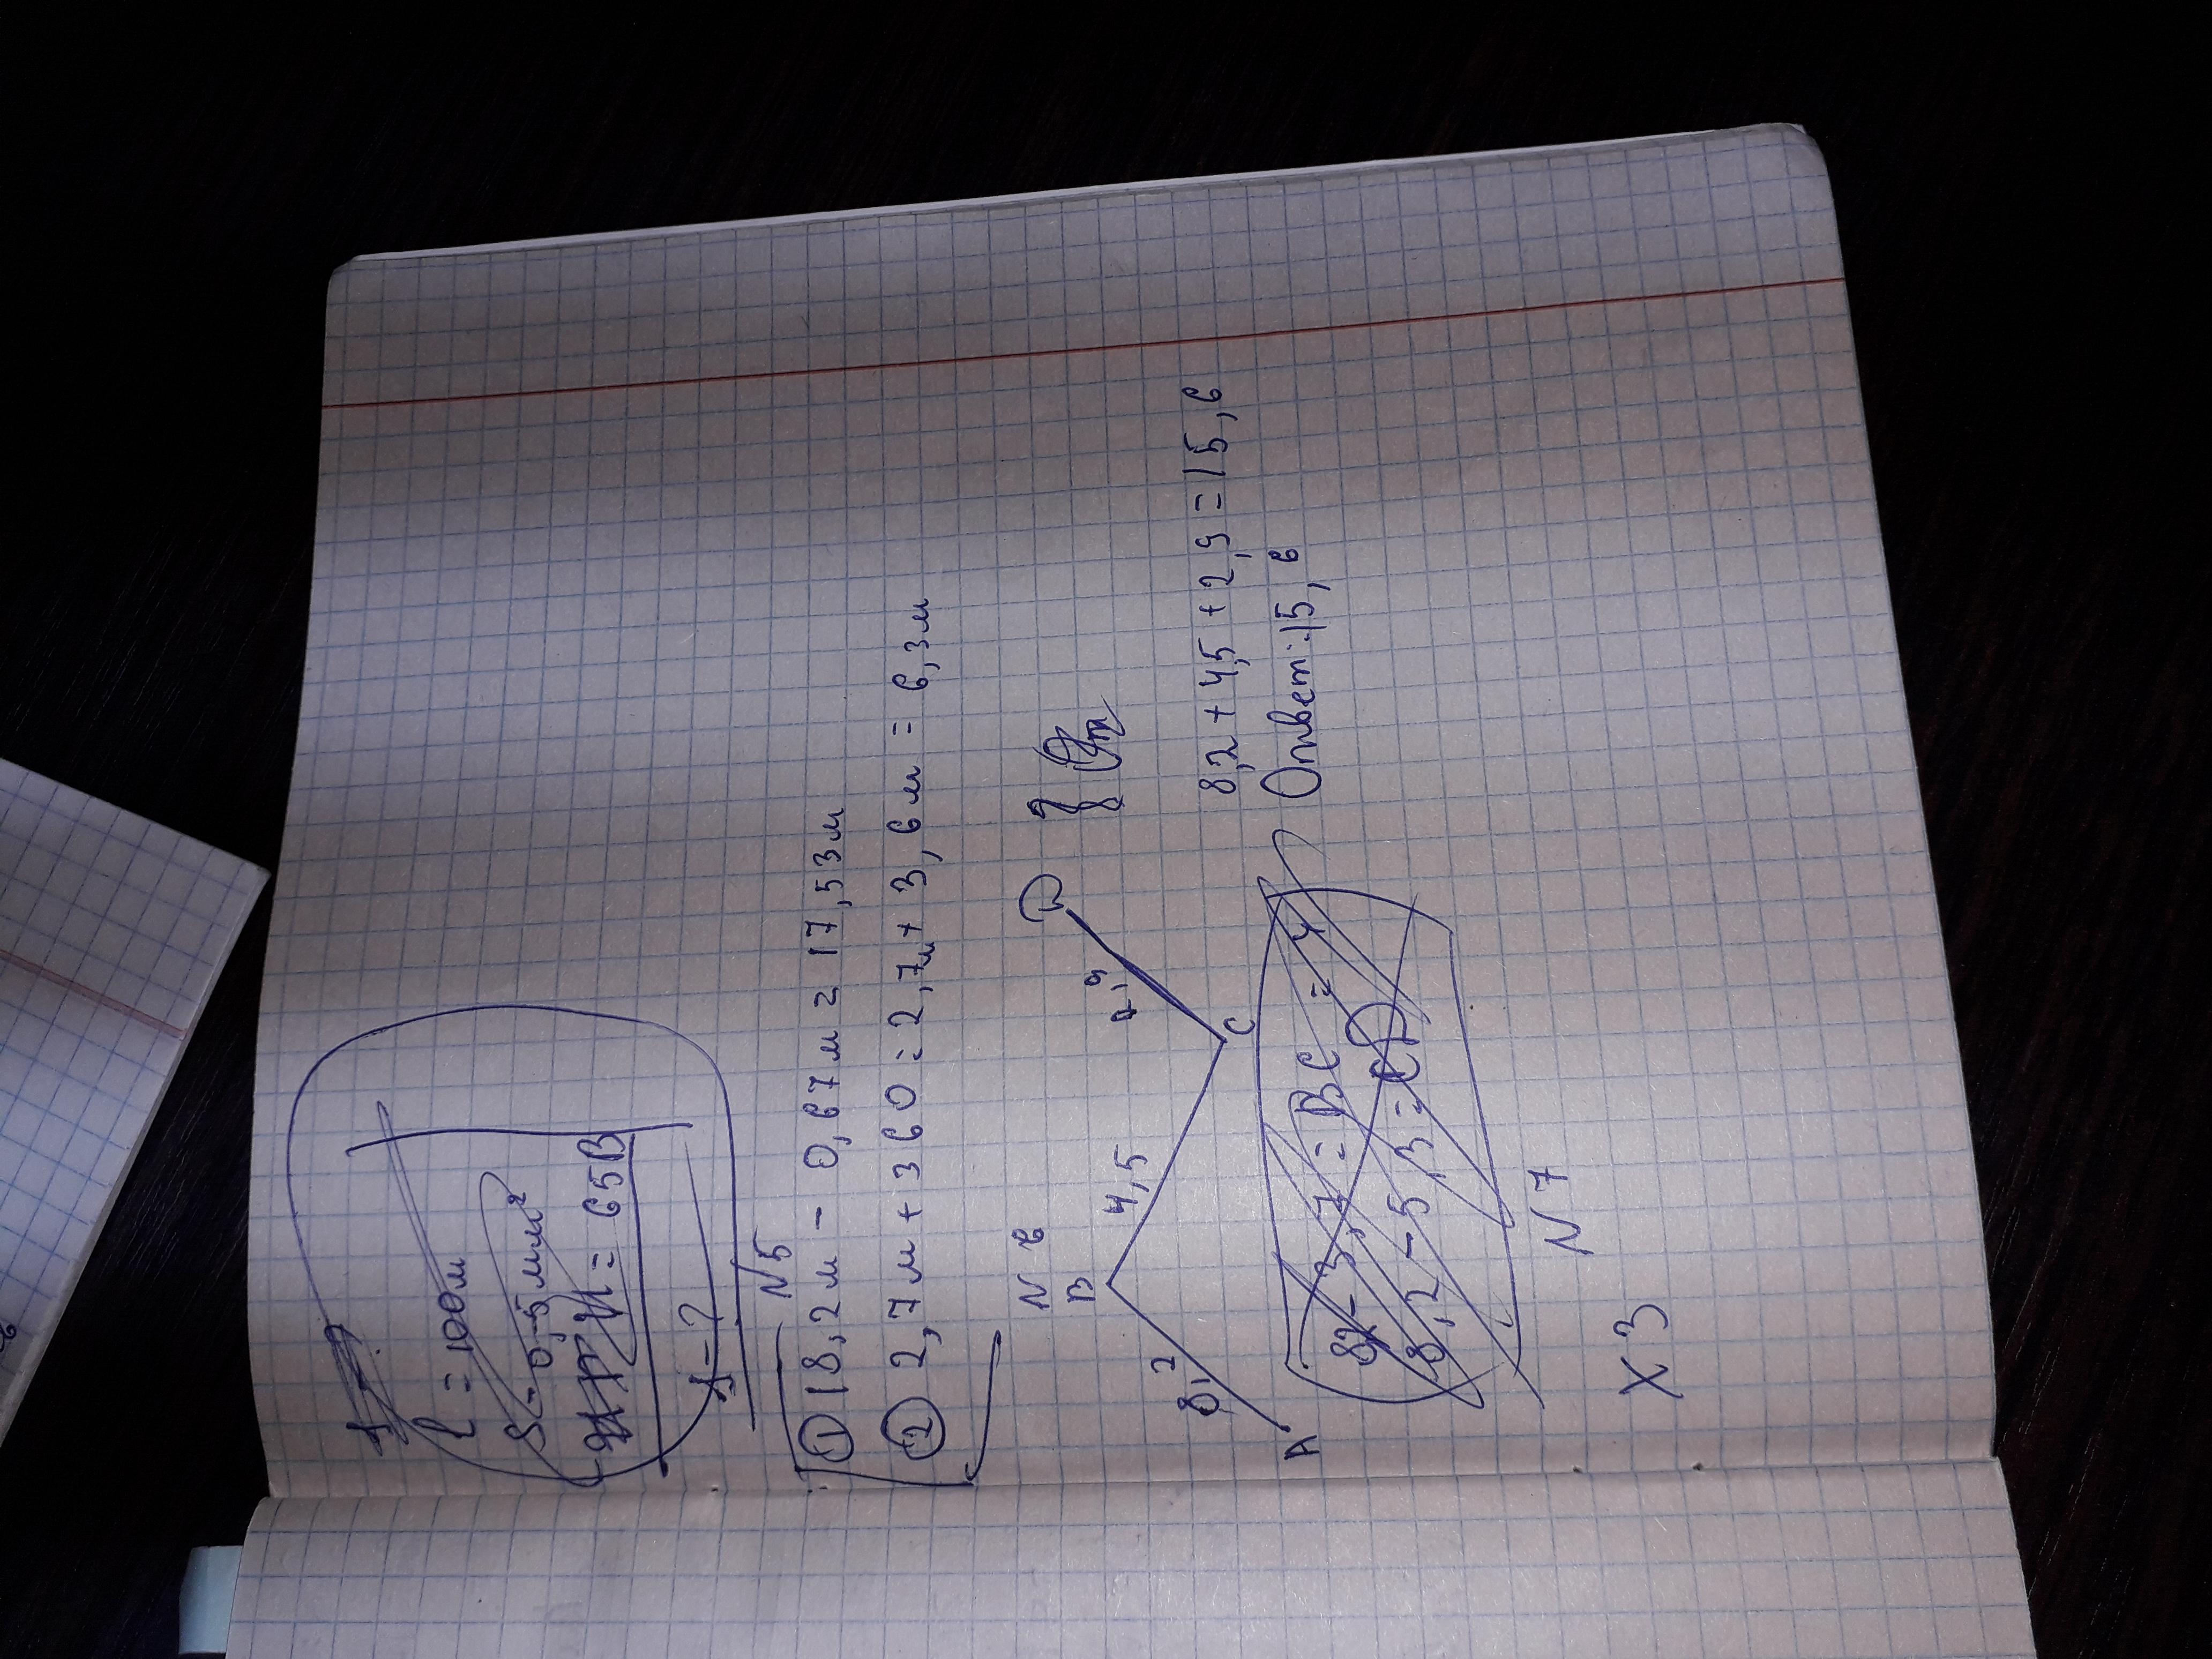 l = 100м
S - 0,5 мм²
= 65В
I - ?
N5
① 18,2м - 0,67м = 17,53м
② 2,7м + 360 = 2,7м + 3,6м = 6,3м
N6
B
D
8,2
4,5
,9
A
C
8,2 + 4,5 + 2,9 = 15,6
Ответ: 15,6
8,2 - 3,7 = BC = 4
8,2 - 5,3 = CD
N7
X3